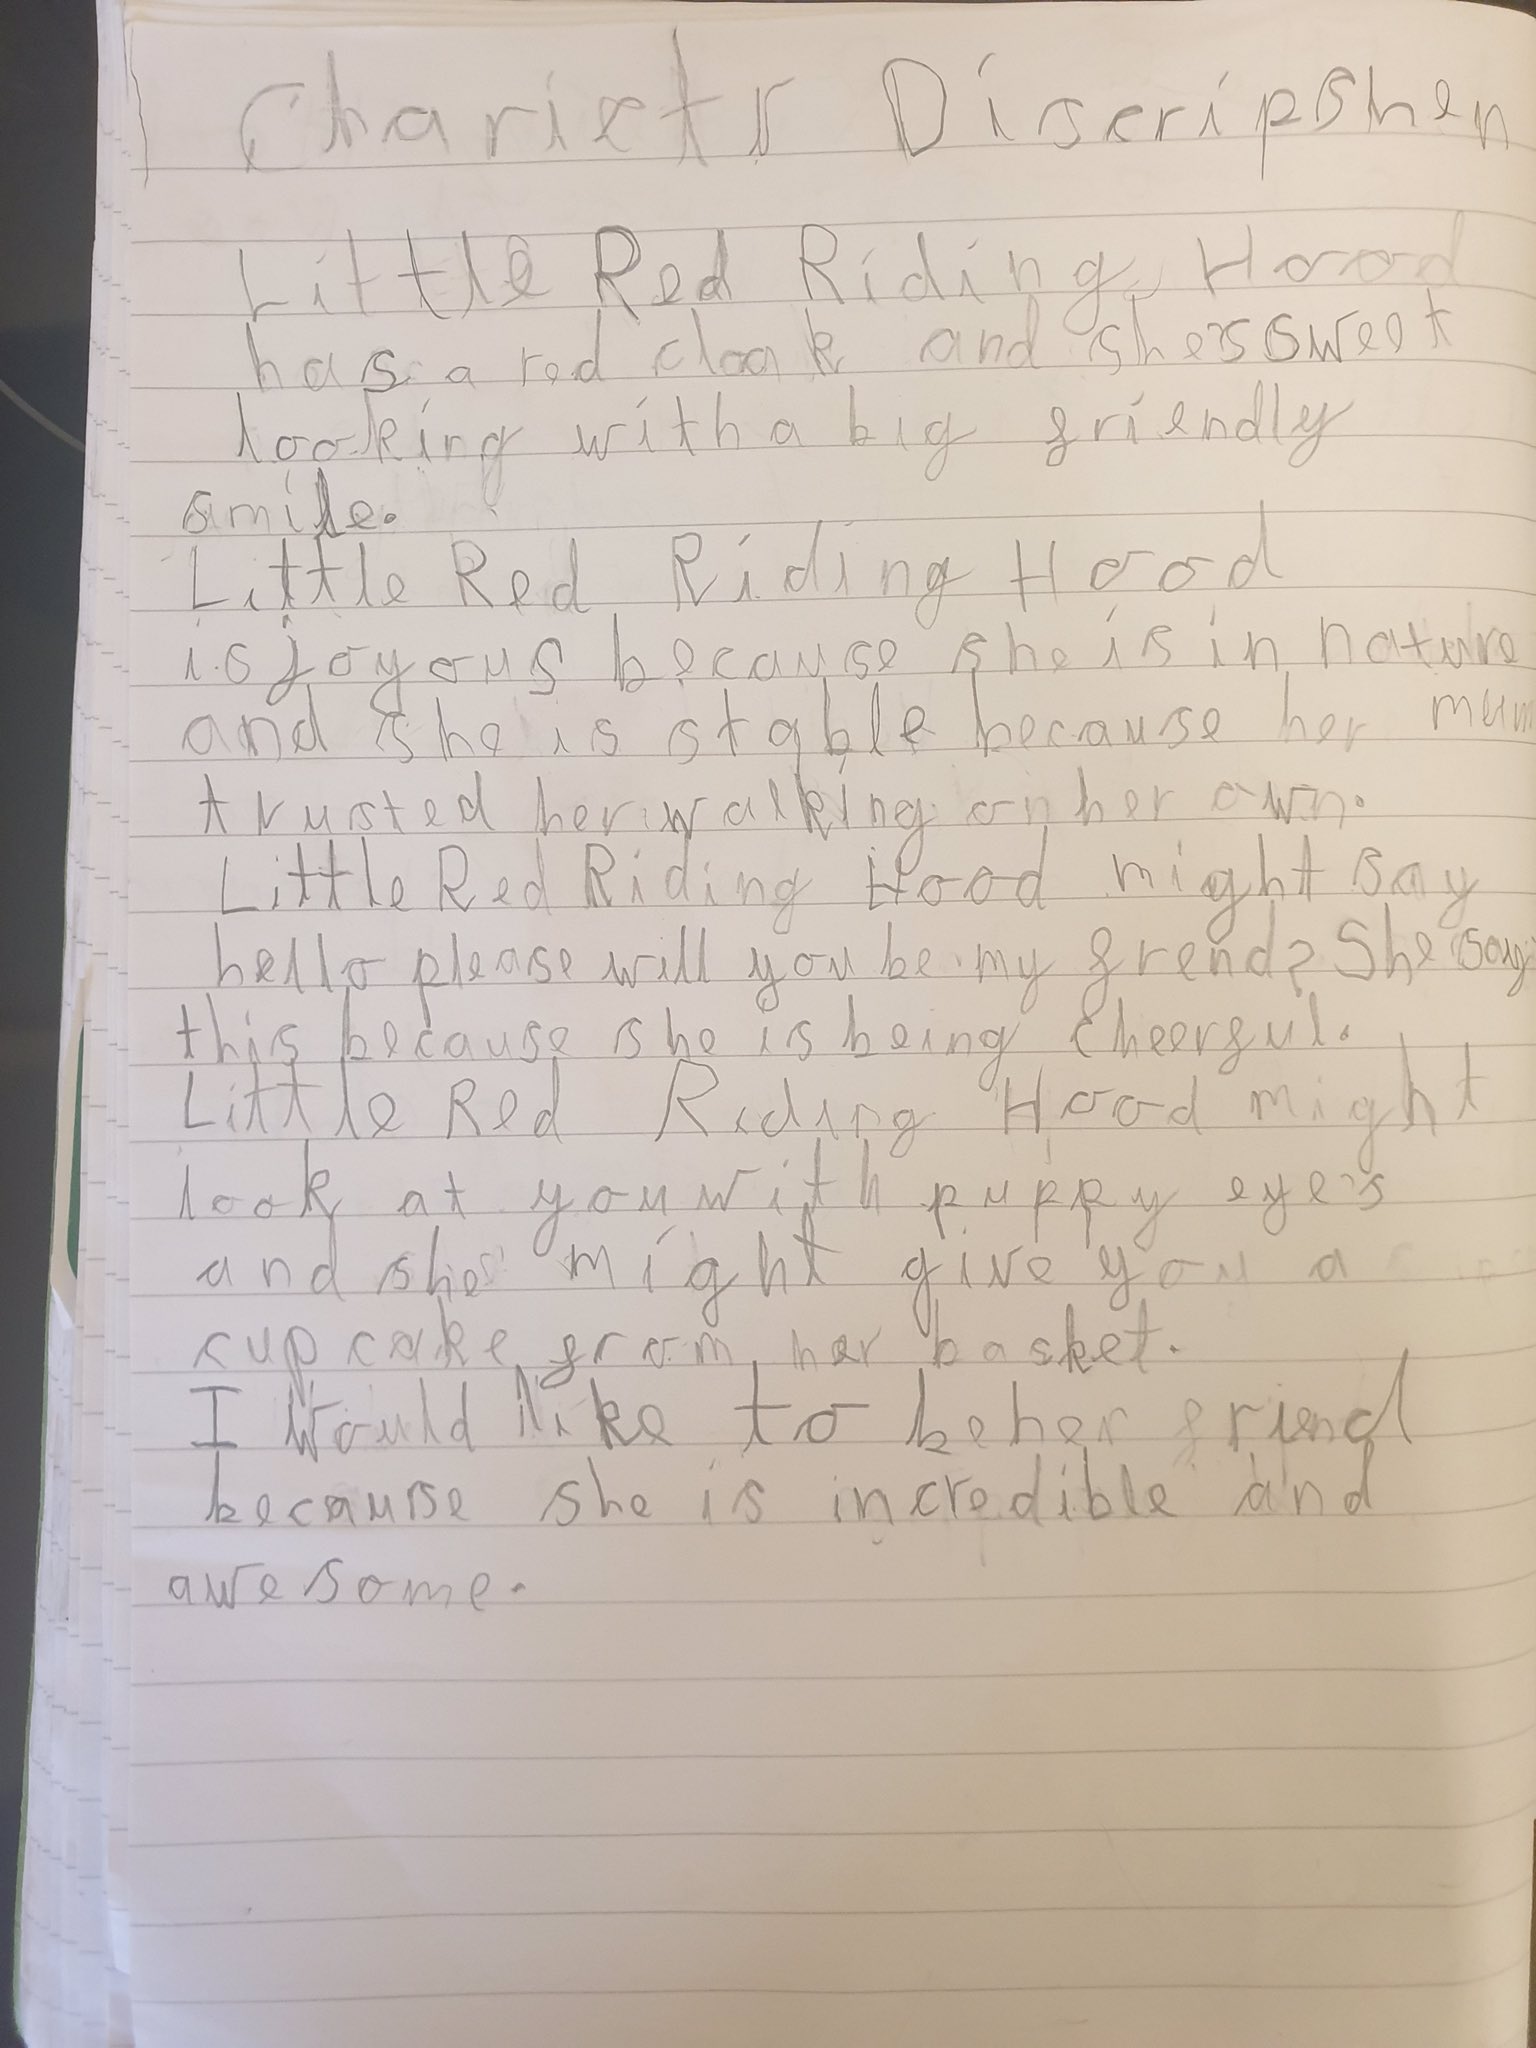 Charictr Discripshen
Little Red Riding Hood
has a red cloak and she's sweet
looking with a big friendly
smile.
Little Red Riding Hood
is joyous because she is in nature
and she is stable because her mum
trusted her walking on her own.
Little Red Riding Hood might say
hello please will you be my frend? She say
this because she is being cheerful.
Little Red Riding Hood might
look at you with puppy eye's
and she might give you a
cup cake from her basket.
I would like to be her friend
because she is incredible and
awesome.